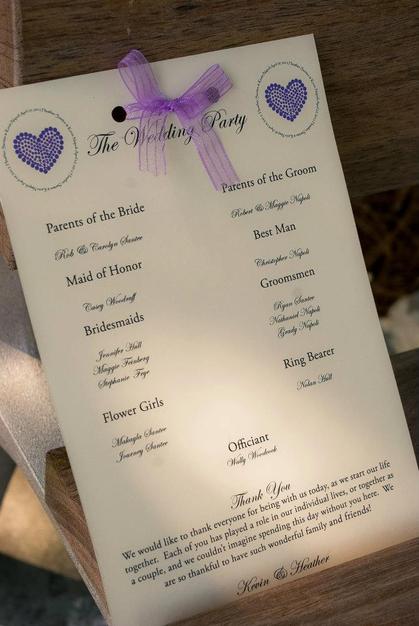 The Wedding Party
Parents of the Bride
Rob & Carolyn Santee
Maid of Honor
Casey Woodruff
Bridesmaids
Jennifer Hall
Maggie Feinberg
Stephanie Frye
Flower Girls
Makayla Santee
Journey Santee
Parents of the Groom
Robert & Maggie Napoli
Best Man
Christopher Napoli
Groomsmen
Ryan Santee
Nathaniel Napoli
Grady Napoli
Ring Bearer
Nolan Hall
Officiant
Wally Woodcock
Thank You
We would like to thank everyone for being with us today, as we start our life
together. Each of you has played a role in our individual lives, or together as
a couple, and we couldn't imagine spending this day without you here. We
are so thankful to have such wonderful family and friends!
Kevin & Heather